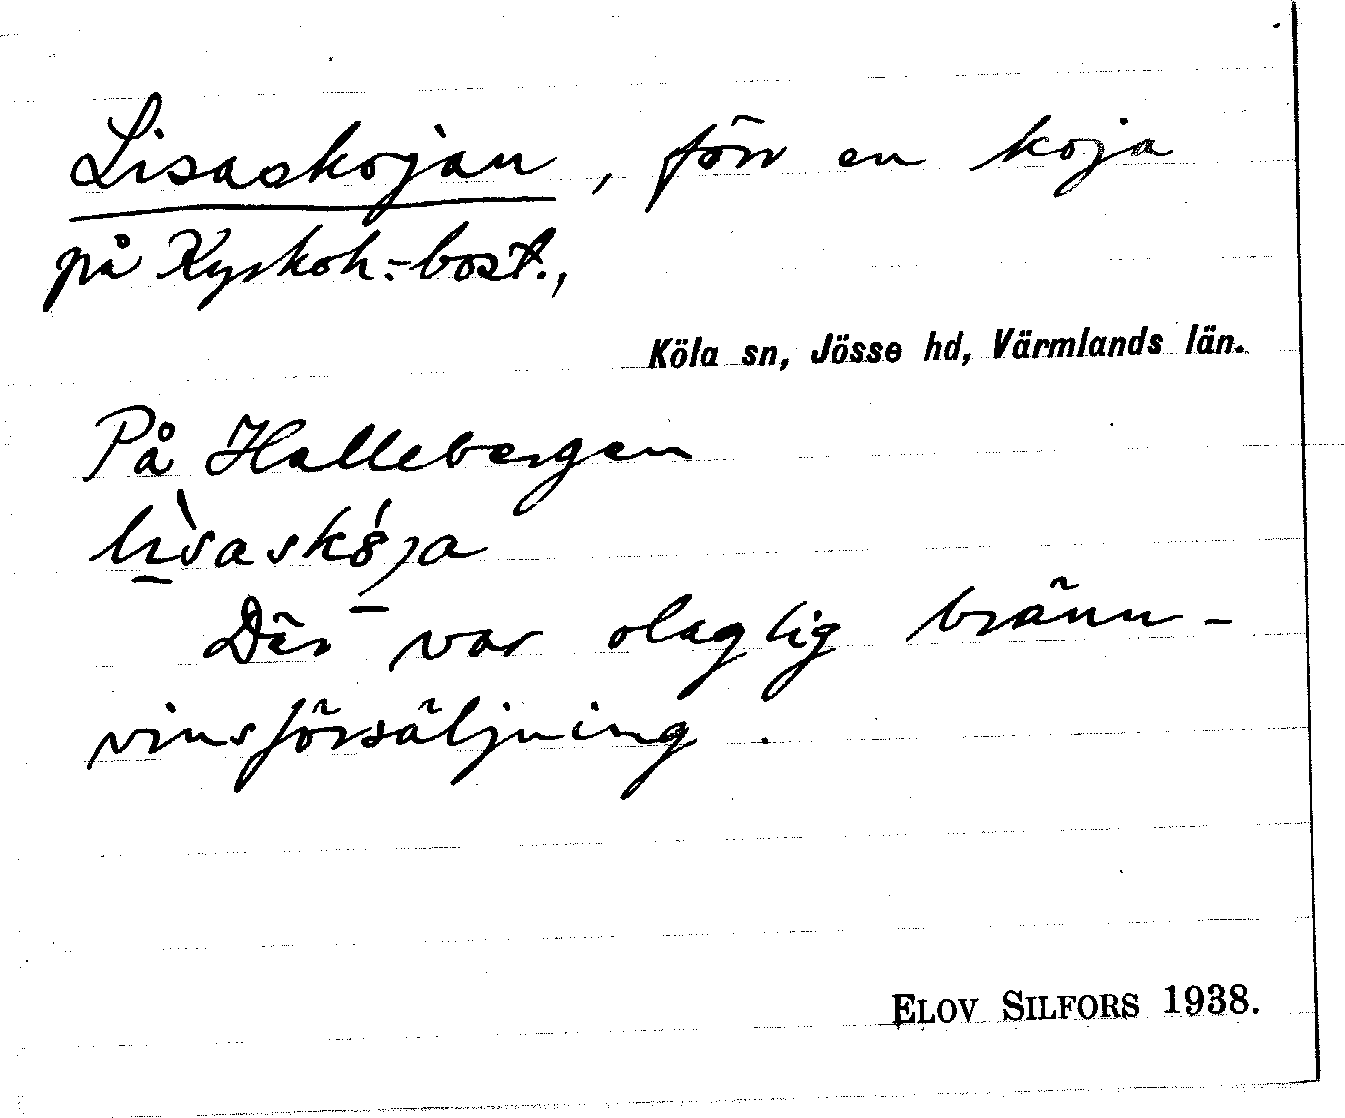 Lisaskojan, förr en koja
på Kyrkoh:-bost.,
Köla sn, Jösse hd, Värmlands län.
På Hallebergen
lìsaskó̤ja
Där var olaglig bränn-
vinsförsäljning.
ELOV SILFORS 1938.